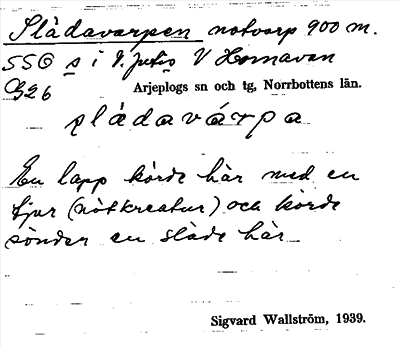 Slädavarpen notvarp 900 m.
SSO s i V. Jutis V Hornavan
G26 Arjeplogs sn och tg, Norrbottens län.
slädavárpa
En lapp körde här med en
tjur (nötkreatur) och körde
sönder en släde här
Sigvard Wallström, 1939.